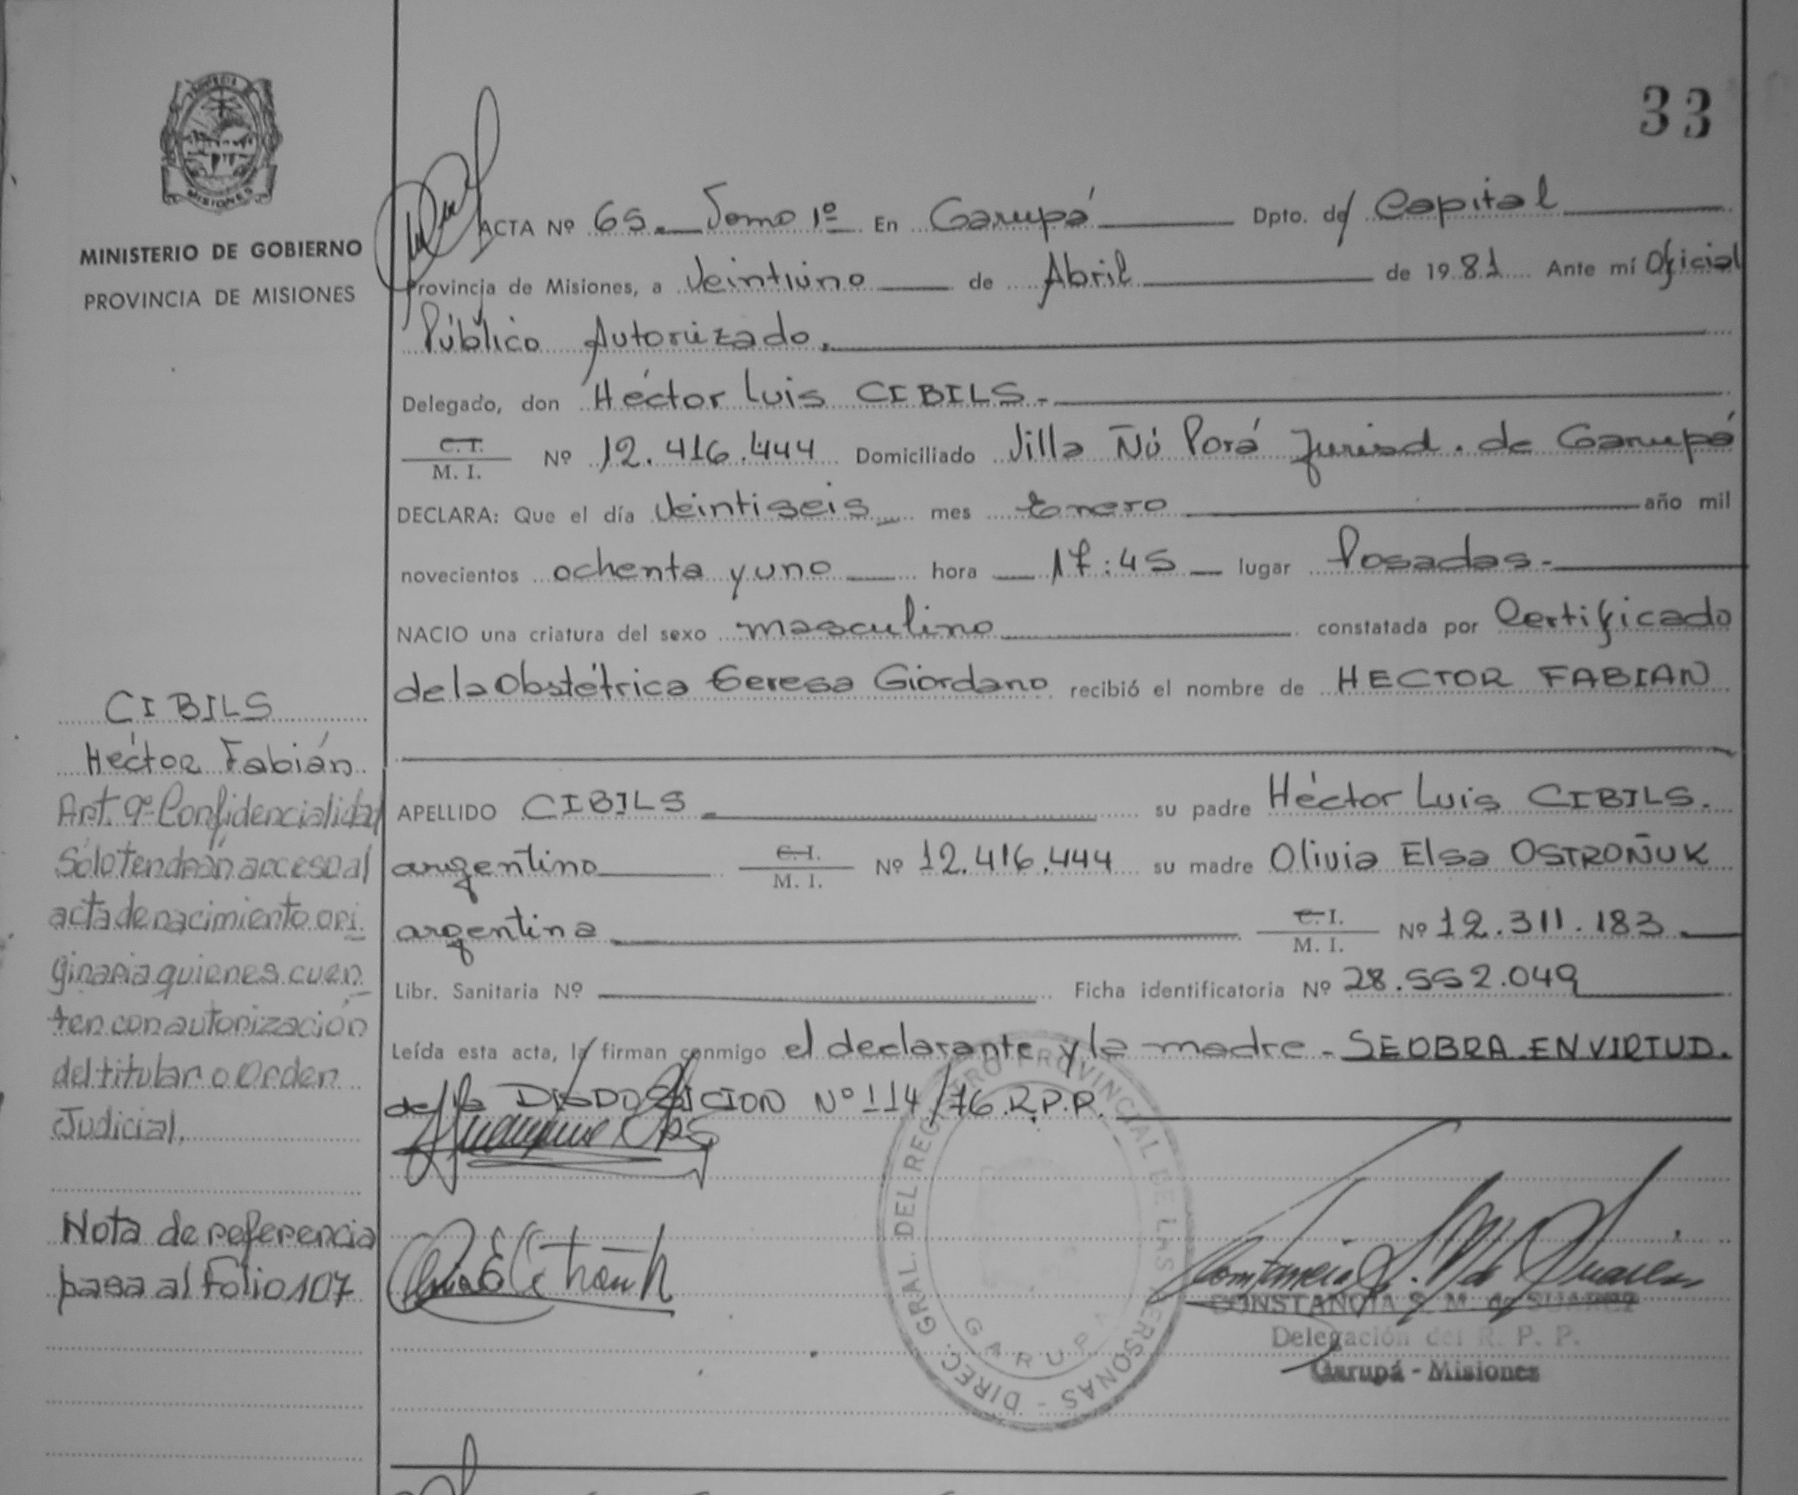 33
PROVINCIA DE
MISIONES
MINISTERIO DE GOBIERNO
PROVINCIA DE MISIONES
ACTA Nº 65. Tomo 1º En Garupá Dpto. de Capital
Provincia de Misiones, a Veintiuno de Abril de 1981 Ante mí Oficial
Público Autorizado.
Delegado, don Héctor Luis CIBILS.-
C.I.
M. I. Nº 12.416.444 Domiciliado Villa Ñú Porá Jurisd. de Garupá
DECLARA: Que el día Veintiseis mes Enero año mil
novecientos ochenta y uno hora 17:45 lugar Posadas.-
NACIO una criatura del sexo masculino constatada por Certificado
de la Obstétrica Teresa Giordano recibió el nombre de HECTOR FABIAN
APELLIDO CIBILS su padre Héctor Luis CIBILS.
argentino C.I. M. I. Nº 12.416.444 su madre Olivia Elsa OSTROÑUK
argentina C.I. M. I. Nº 12.311.183.
Libr. Sanitaria Nº Ficha identificatoria Nº 28.552.049
Leída esta acta, la firman conmigo el declarante y la madre - SEOBRA EN VIRTUD.
de la DISPOSICION Nº 114/76.R.P.P.
CIBILS
Héctor Fabián
Art. 9º- Confidencialidad
Sólo tendrán acceso al
acta de nacimiento ori
ginaria quienes cuen
ten con autorización
del titular o Orden
Judicial.
Nota de referencia
pasa al Folio 107
DIREC. GRAL. DEL REGISTRO PROVINCIAL DE LAS PERSONAS -
GARUPA
CONSTANCIA S. M. de SUAREZ
Delegación del R. P. P.
Garupá - Misiones